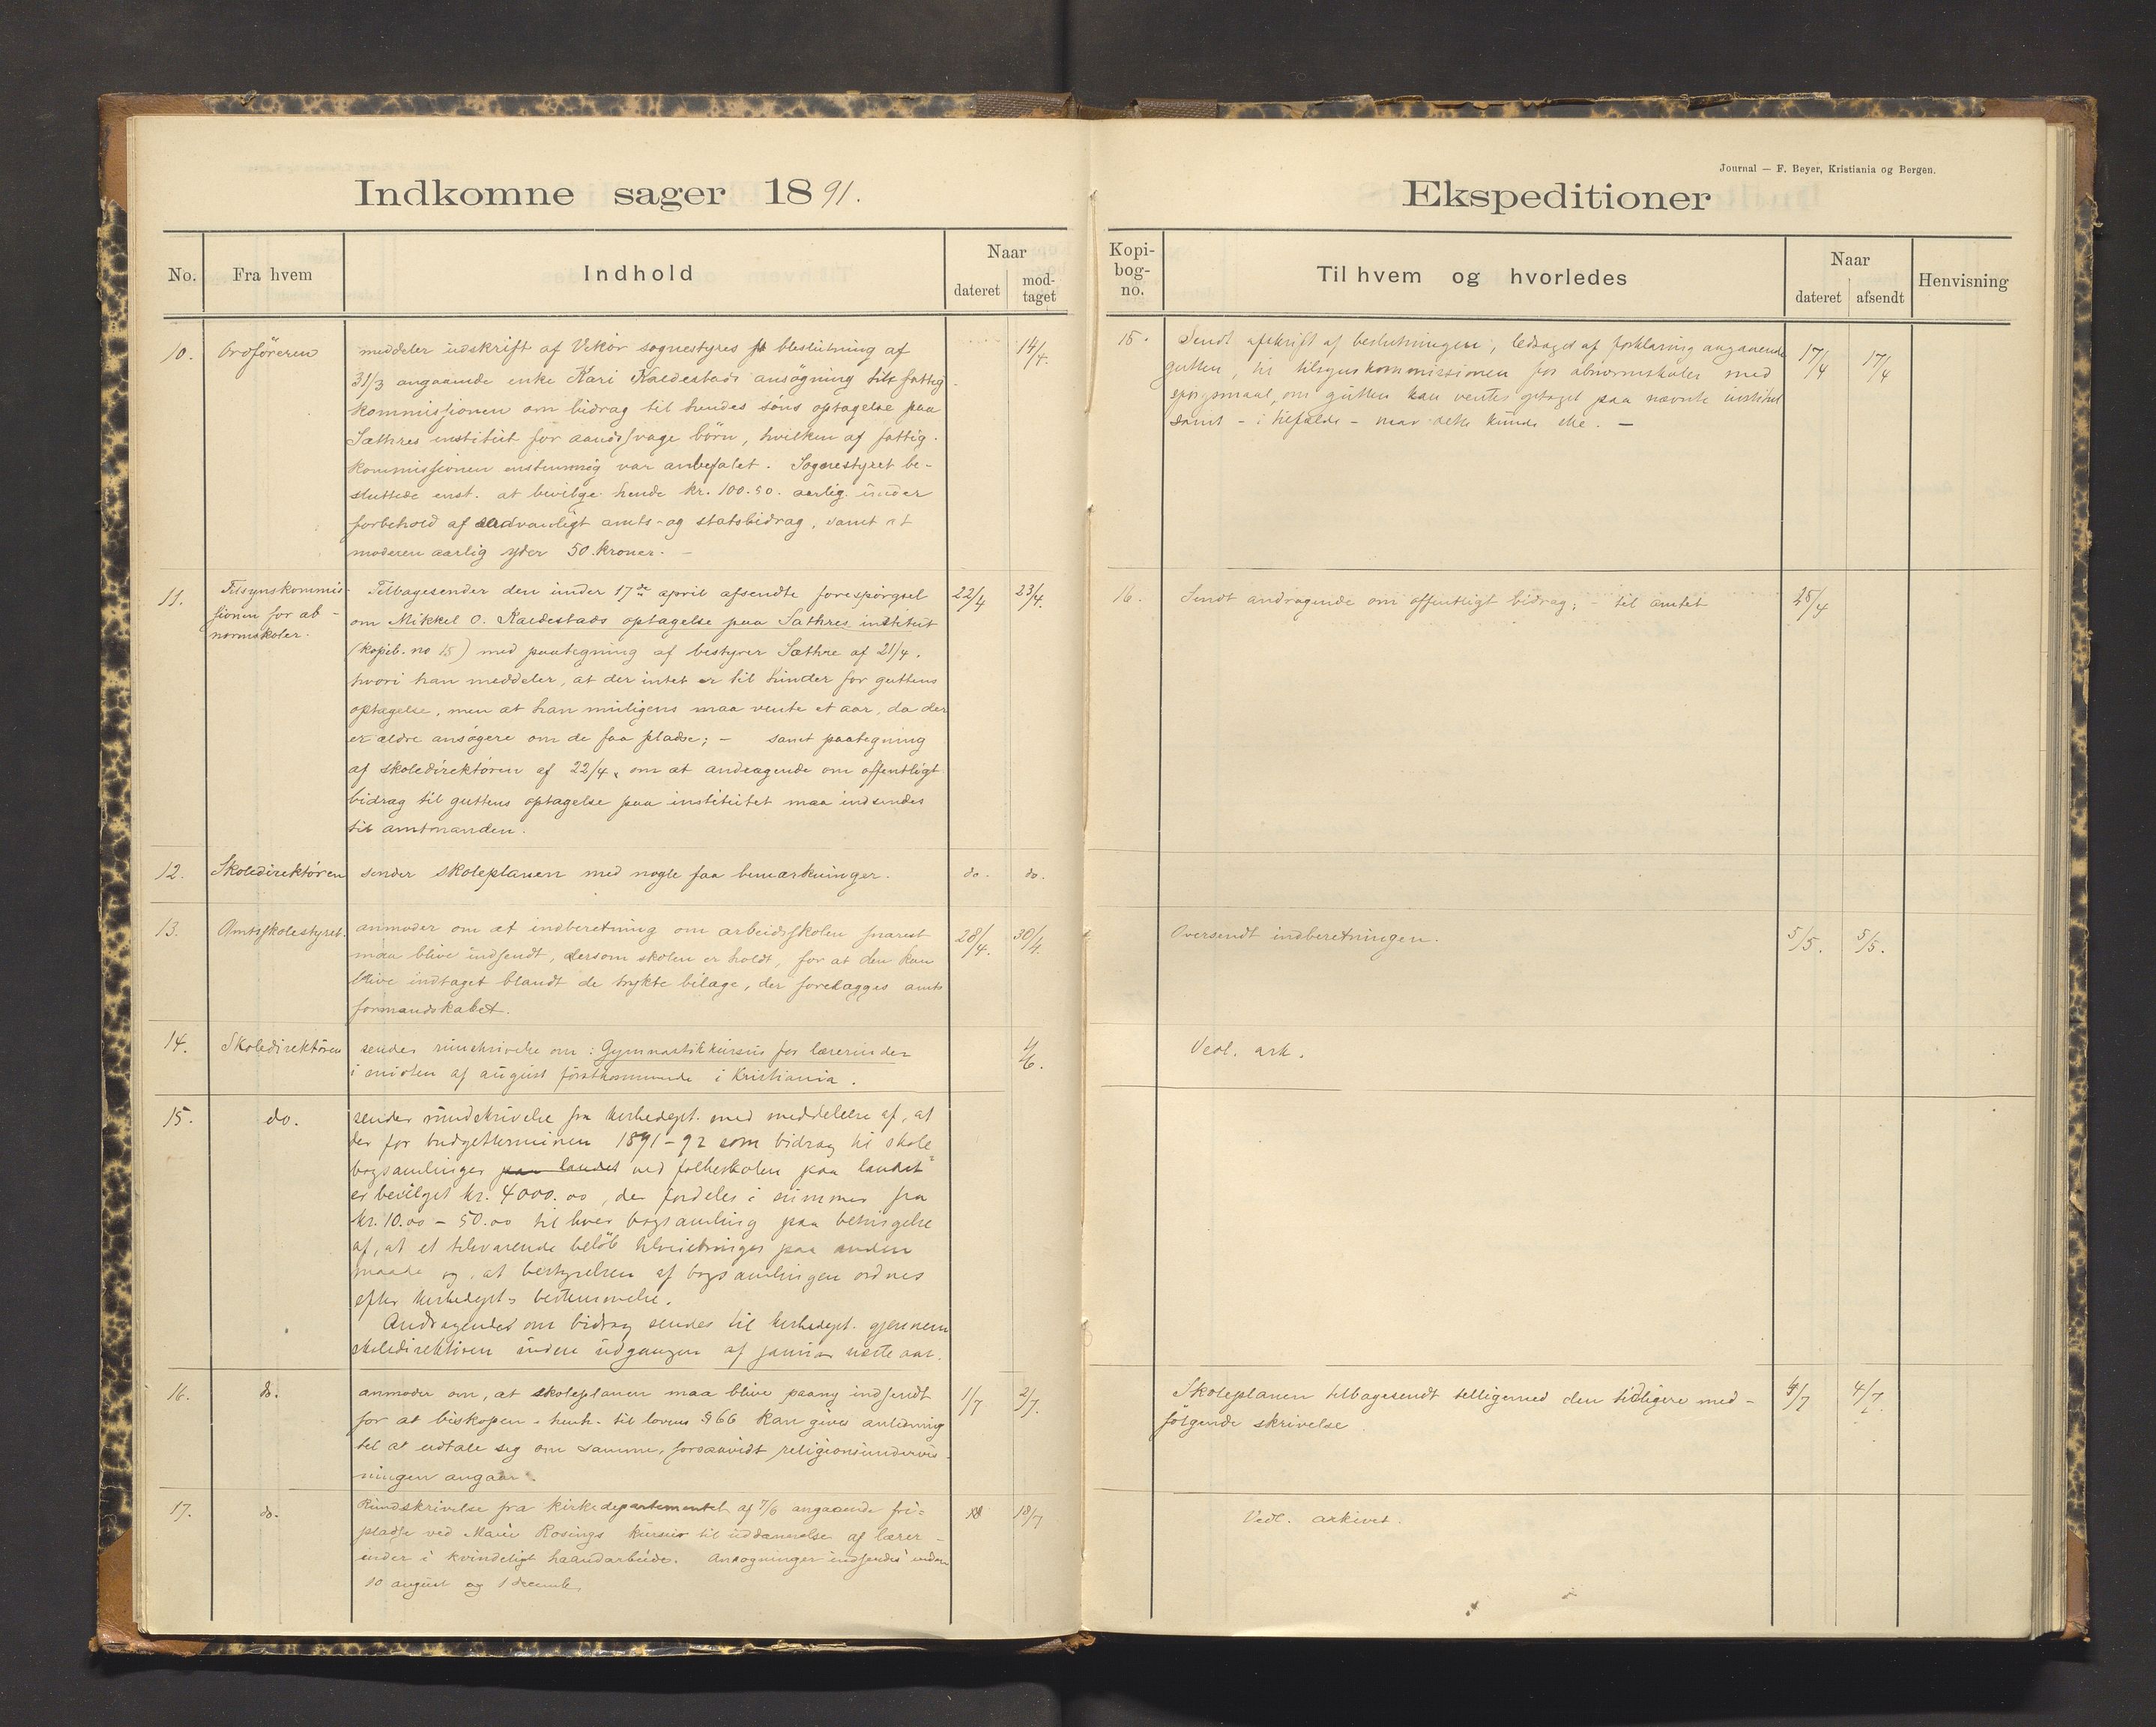 Indkomne sager 1891.
No.
Fra hvem
Indhold
Naar
dateret
mod-
taget
10.
Ordføreren
meddeler udskrift af Vikør sognestyres beslutning af
31/3 angaaende enke Kari Kaldestads ansøgning til fattig-
kommissjonen om bidrag til hendes søns optagelse paa
Sæthres institut for aandssvage børn, hvilken af fattig-
kommissjonen enstemmig var anbefalet. Sognestyret be-
sluttede enst. at bevilge hende kr. 100.50. aarlig under
forbehold af sædvanligt amts- og statsbidrag, samt at
moderen aarlig yder 50 kroner. –
14/4.
11.
Tilsynskommis-
sjonen for ab-
normskoler.
Tilbagesender den under 17de april afsendte forespørgsel
om Mikkel O. Kaldestads optagelse paa Sæthres institut
(kopib. no 15) med paategning af bestyrer Sæthre af 21/4,
hvori han meddeler, at der intet er til hinder for guttens
optagelse, men at han muligens maa vente et aar, da der
er ældre ansøgere om de faa pladse; – samt paategning
af skoledirektøren af 22/4, om at andragende om offentligt
bidrag til guttens optagelse paa institutet maa indsendes
til amtmanden.
22/4
23/4.
12.
Skoledirektøren
sender skoleplanen med nogle faa bemærkninger.
do.
do.
13.
Amtsskolestyret.
anmoder om at indberetning om arbeidsskolen snarest
maa blive indsendt, dersom skolen er holdt, for at den kan
blive indtaget blandt de trykte bilage, der forelægges amts
formandskabet.
28/4.
30/4.
14.
Skoledirektøren
sender rundskrivelse om: Gymnastikkursus for lærerinder
i midten af august førstkommende i Kristiania.
4/6.
15.
do.
sender rundskrivelse fra kirkedept. med meddelelse af, at
der for budgetterminen 1891-92 som bidrag til skole-
bogsamlinger paa landet ved folkeskolen paa landet
er bevilget kr. 4000.00, der fordeles i summer fra
kr. 10.00 – 50.00 til hver bogsamling paa betingelse
af, at et tilsvarende beløb tilveiebringes paa anden
maade og, at bestyrelsen af bogsamlingen ordnes
efter kirkedept.s bestemmelse.
Andragender om bidrag sendes til kirkedept. gjennem
skoledirektøren inden udgangen af januar næste aar.
16.
do.
anmoder om, at skoleplanen maa blive paany indsendt
for at biskopen – henh. til lovens § 66 kan gives anledning
til at udtale sig om samme, forsaavidt religionsundervis-
ningen angaar.
1/7
2/7.
17.
do.
Rundskrivelse fra kirkedepartementet af 7/6 angaaende fri-
pladse ved Marie Rosings kursus til uddannelse af lærer-
inder i kvindeligt haandarbeide. Ansøgninger indsendes inden
10 august og 1 december
18/7
Journal — F. Beyer, Kristiania og Bergen.
Ekspeditioner
Kopi-
bog-
no.
Til hvem og hvorledes
Naar
dateret
afsendt
Henvisning
15.
Sendt afskrift af beslutningen, ledsaget af forklaring angaaende
gutten, til tilsynskommissionen for abnormskoler med
spørgsmaal, om gutten kan ventes optaget paa nævnte institut
samt – i tilfælde – naar dette kunde ske. –
17/4
17/4
16.
Sendt andragende om offentligt bidrag; – til amtet
25/4
Oversendt indberetningen.
5/5.
5/5.
Vedl. ark.
Skoleplanen tilbagesendt tilligemed den tidligere med-
følgende skrivelse
4/7
4/7.
Vedl. arkivet.